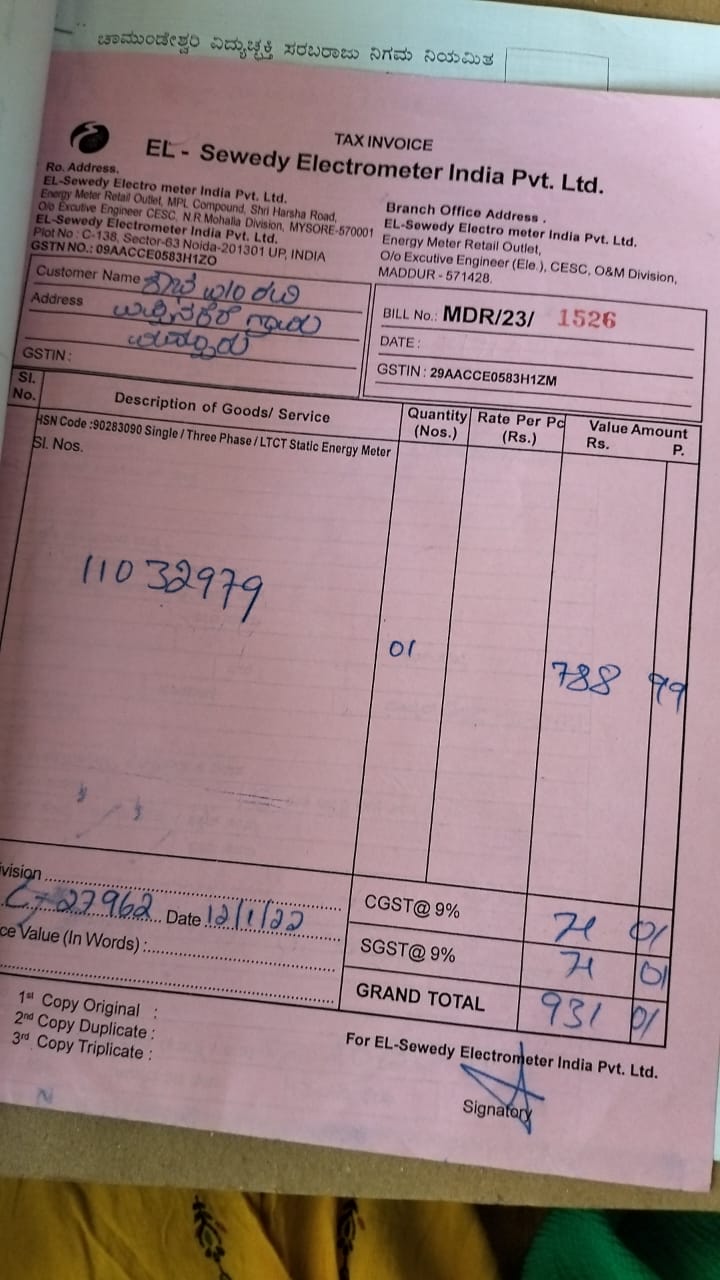 ಚಾಮುಂಡೇಶ್ವರಿ ವಿದ್ಯುಚ್ಛಕ್ತಿ ಸರಬರಾಜು ನಿಗಮ ನಿಯಮಿತ
TAX INVOICE
EL - Sewedy Electrometer India Pvt. Ltd.
Ro. Address.
EL-Sewedy Electro meter India Pvt. Ltd.
Energy Meter Retail Outlet, MPL Compound, Shri Harsha Road,
O/o Excutive Engineer CESC, N.R.Mohalla Division, MYSORE-570001
EL-Sewedy Electrometer India Pvt. Ltd.
Plot No : C-138, Sector-63 Noida-201301 UP, INDIA
GSTN NO.: 09AACCE0583H1ZO
Branch Office Address .
EL-Sewedy Electro meter India Pvt. Ltd.
Energy Meter Retail Outlet,
O/o Excutive Engineer (Ele.), CESC, O&M Division,
MADDUR - 571428.
Customer Name
Address
GSTIN :
BILL No.: MDR/23/ 1526
DATE :
GSTIN : 29AACCE0583H1ZM
Sl. No. Description of Goods/ Service Quantity (Nos.) Rate Per Pc (Rs.) Value Amount Rs. P.
HSN Code :90283090 Single / Three Phase / LTCT Static Energy Meter
Sl. Nos.
11032979
01 788 99
CGST@ 9% 71 01
27962 Date 12/1/22
SGST@ 9% 71 01
Value (In Words) :
GRAND TOTAL 931 01
1st Copy Original :
2nd Copy Duplicate :
3rd Copy Triplicate :
For EL-Sewedy Electrometer India Pvt. Ltd.
Signatory